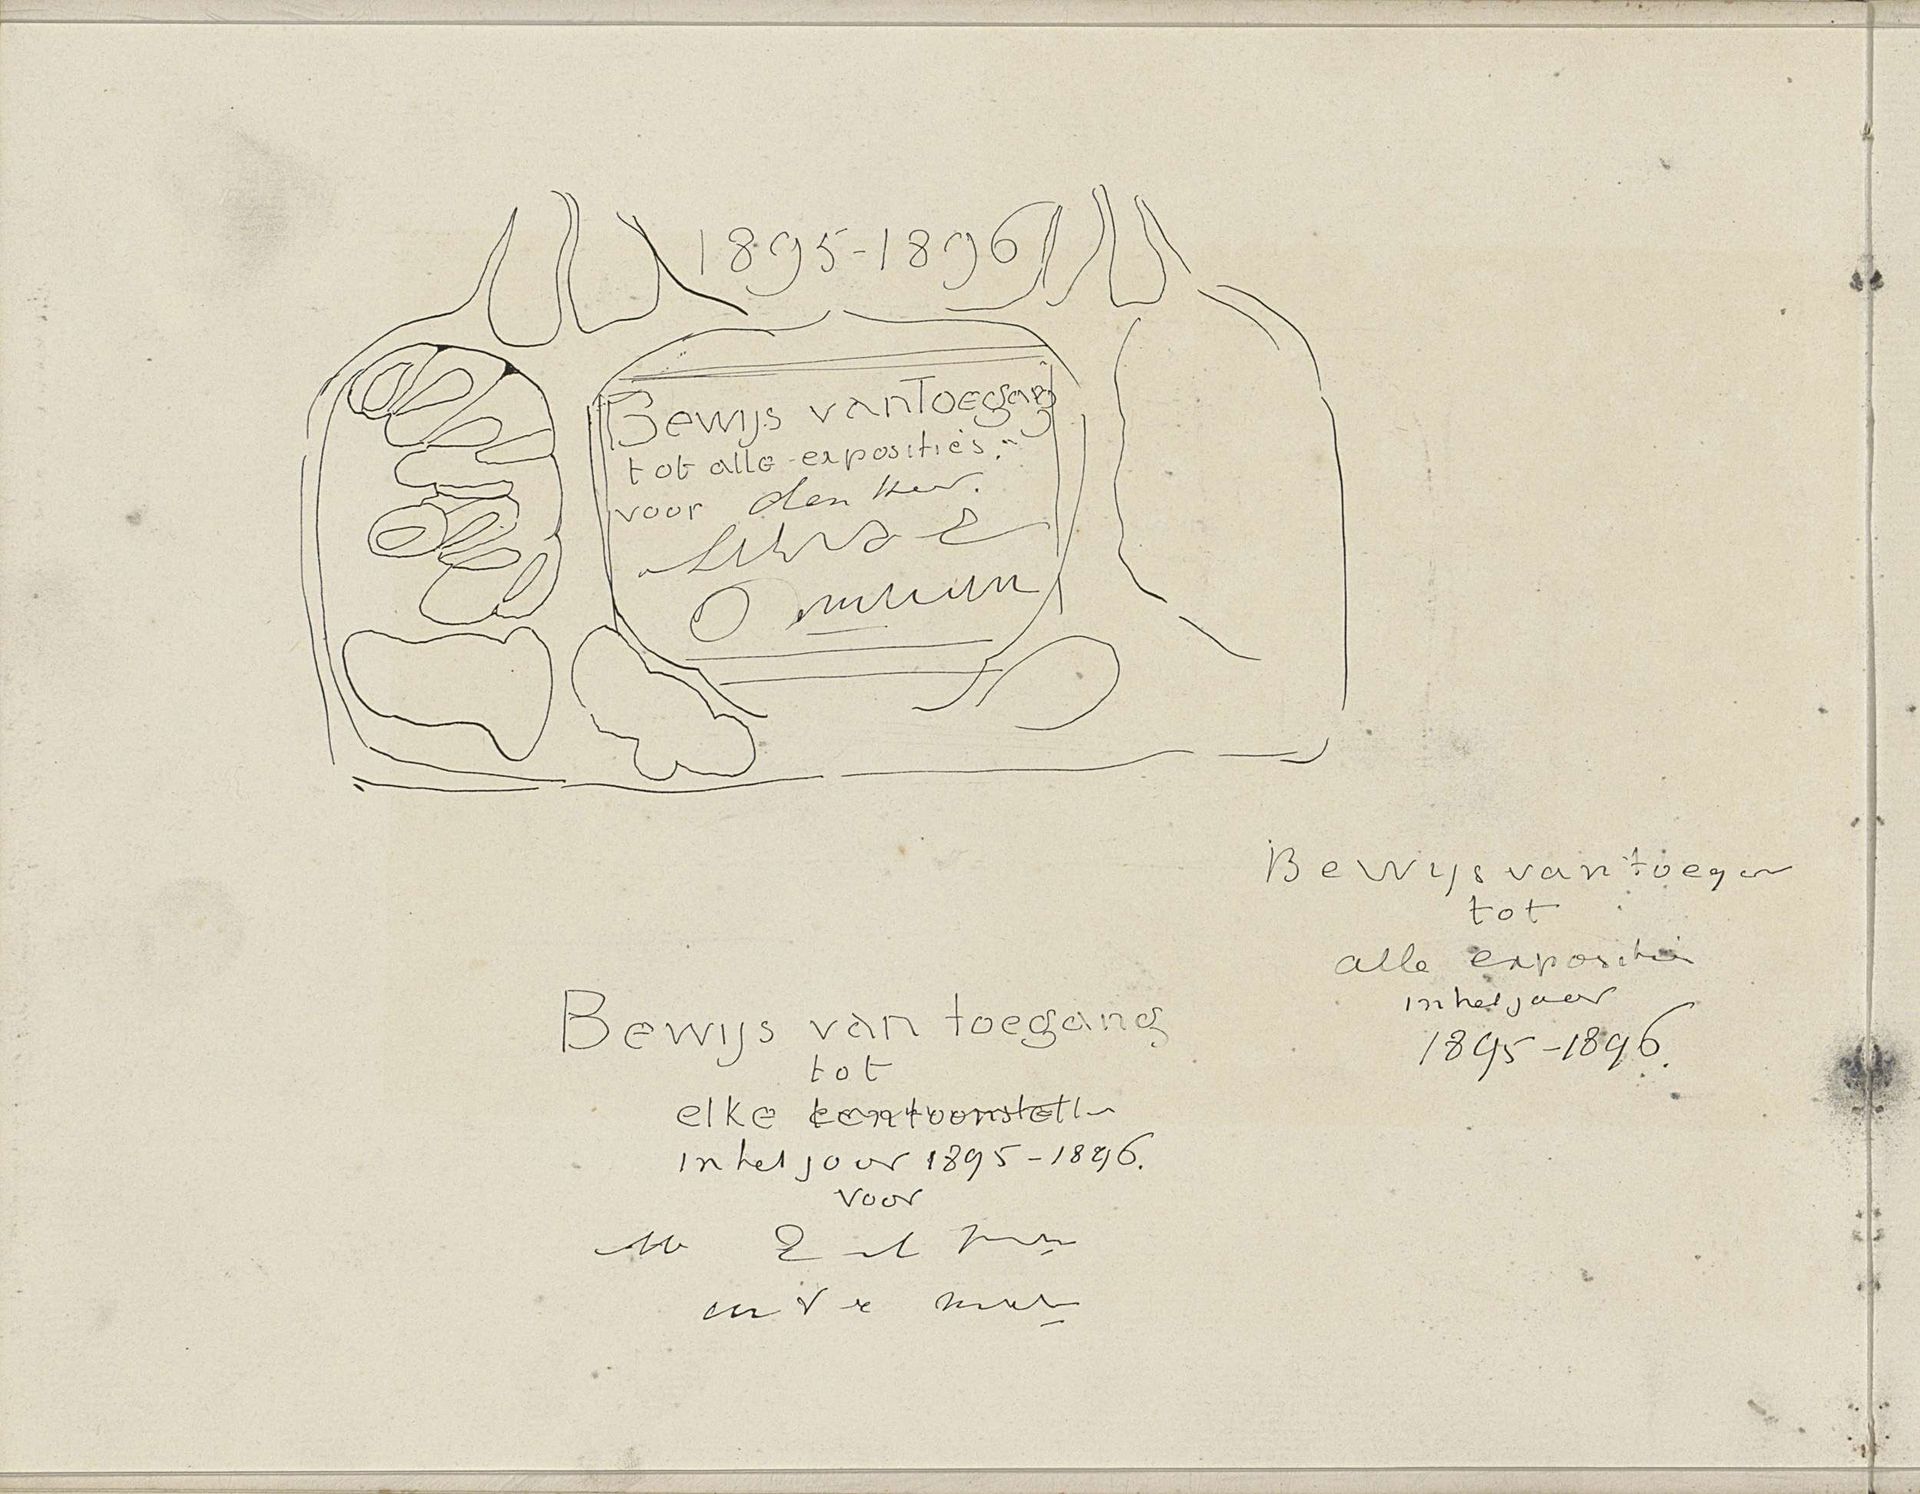 1895-1896
Bewijs van Toegang
tot alle exposities.
voor den Heer.
Bewijs van toegan
tot
alle expositie
in het jaar
1895-1896.
Bewijs van toegang
tot
elke tentoonstell
in het jaar 1895-1896.
voor